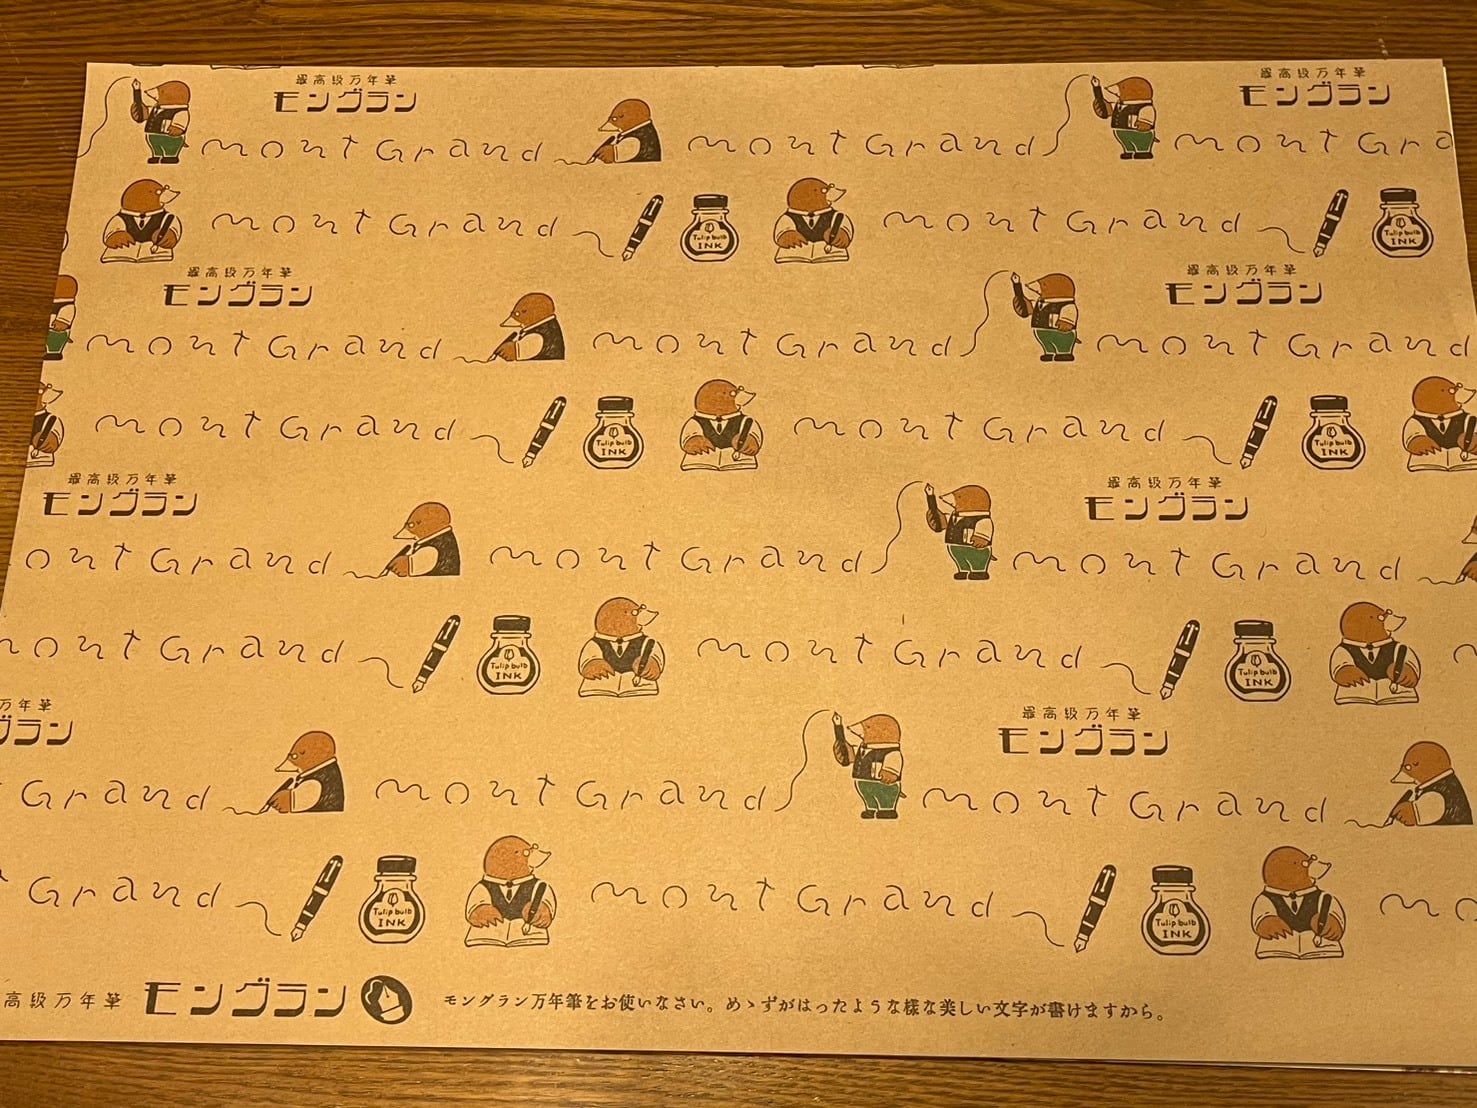 最高級万年筆 最高級万年筆
モングラン モングラン
mont Grand mont Grand mont Gra
mont Grand mont Grand
Tulip bulb Tulip bulb
INK INK
最高級万年筆 最高級万年筆
モングラン モングラン
mont Grand mont Grand mont Grand
mont Grand mont Grand
Tulip bulb Tulip bulb
INK INK
最高級万年筆 最高級万年筆
モングラン モングラン
ont Grand mont Grand mont Grand
mont Grand mont Grand
Tulip bulb Tulip bulb
INK INK
万年筆 最高級万年筆
グラン モングラン
Grand mont Grand mont Grand
Grand mont Grand mo
Tulip bulb Tulip bulb
INK INK
高級万年筆 モングラン モングラン万年筆をお使いなさい。めゝずがはったような様な美しい文字が書けますから。